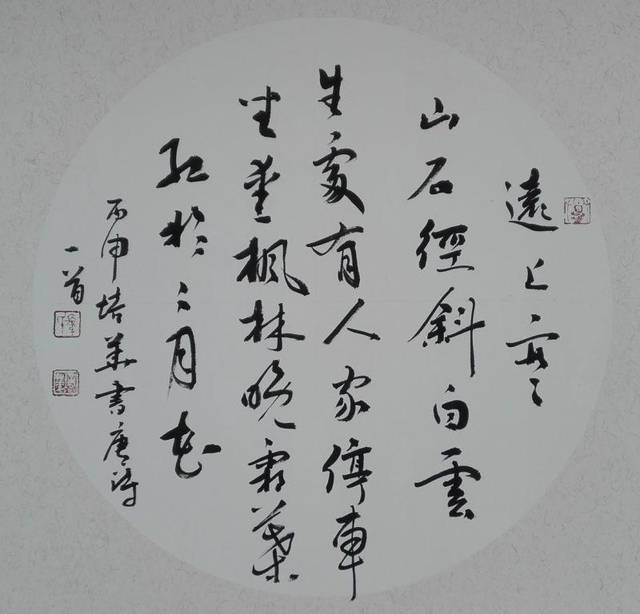 遠上寒
山石徑斜白雲
生處有人家停車
坐愛楓林晚霜葉
紅於二月花
丙申培華書唐詩
一首